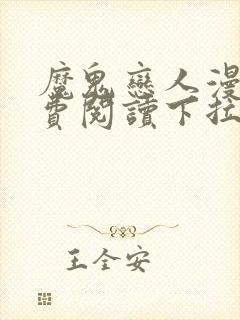 魔鬼戀人漫
費閱讀下拉
王全安